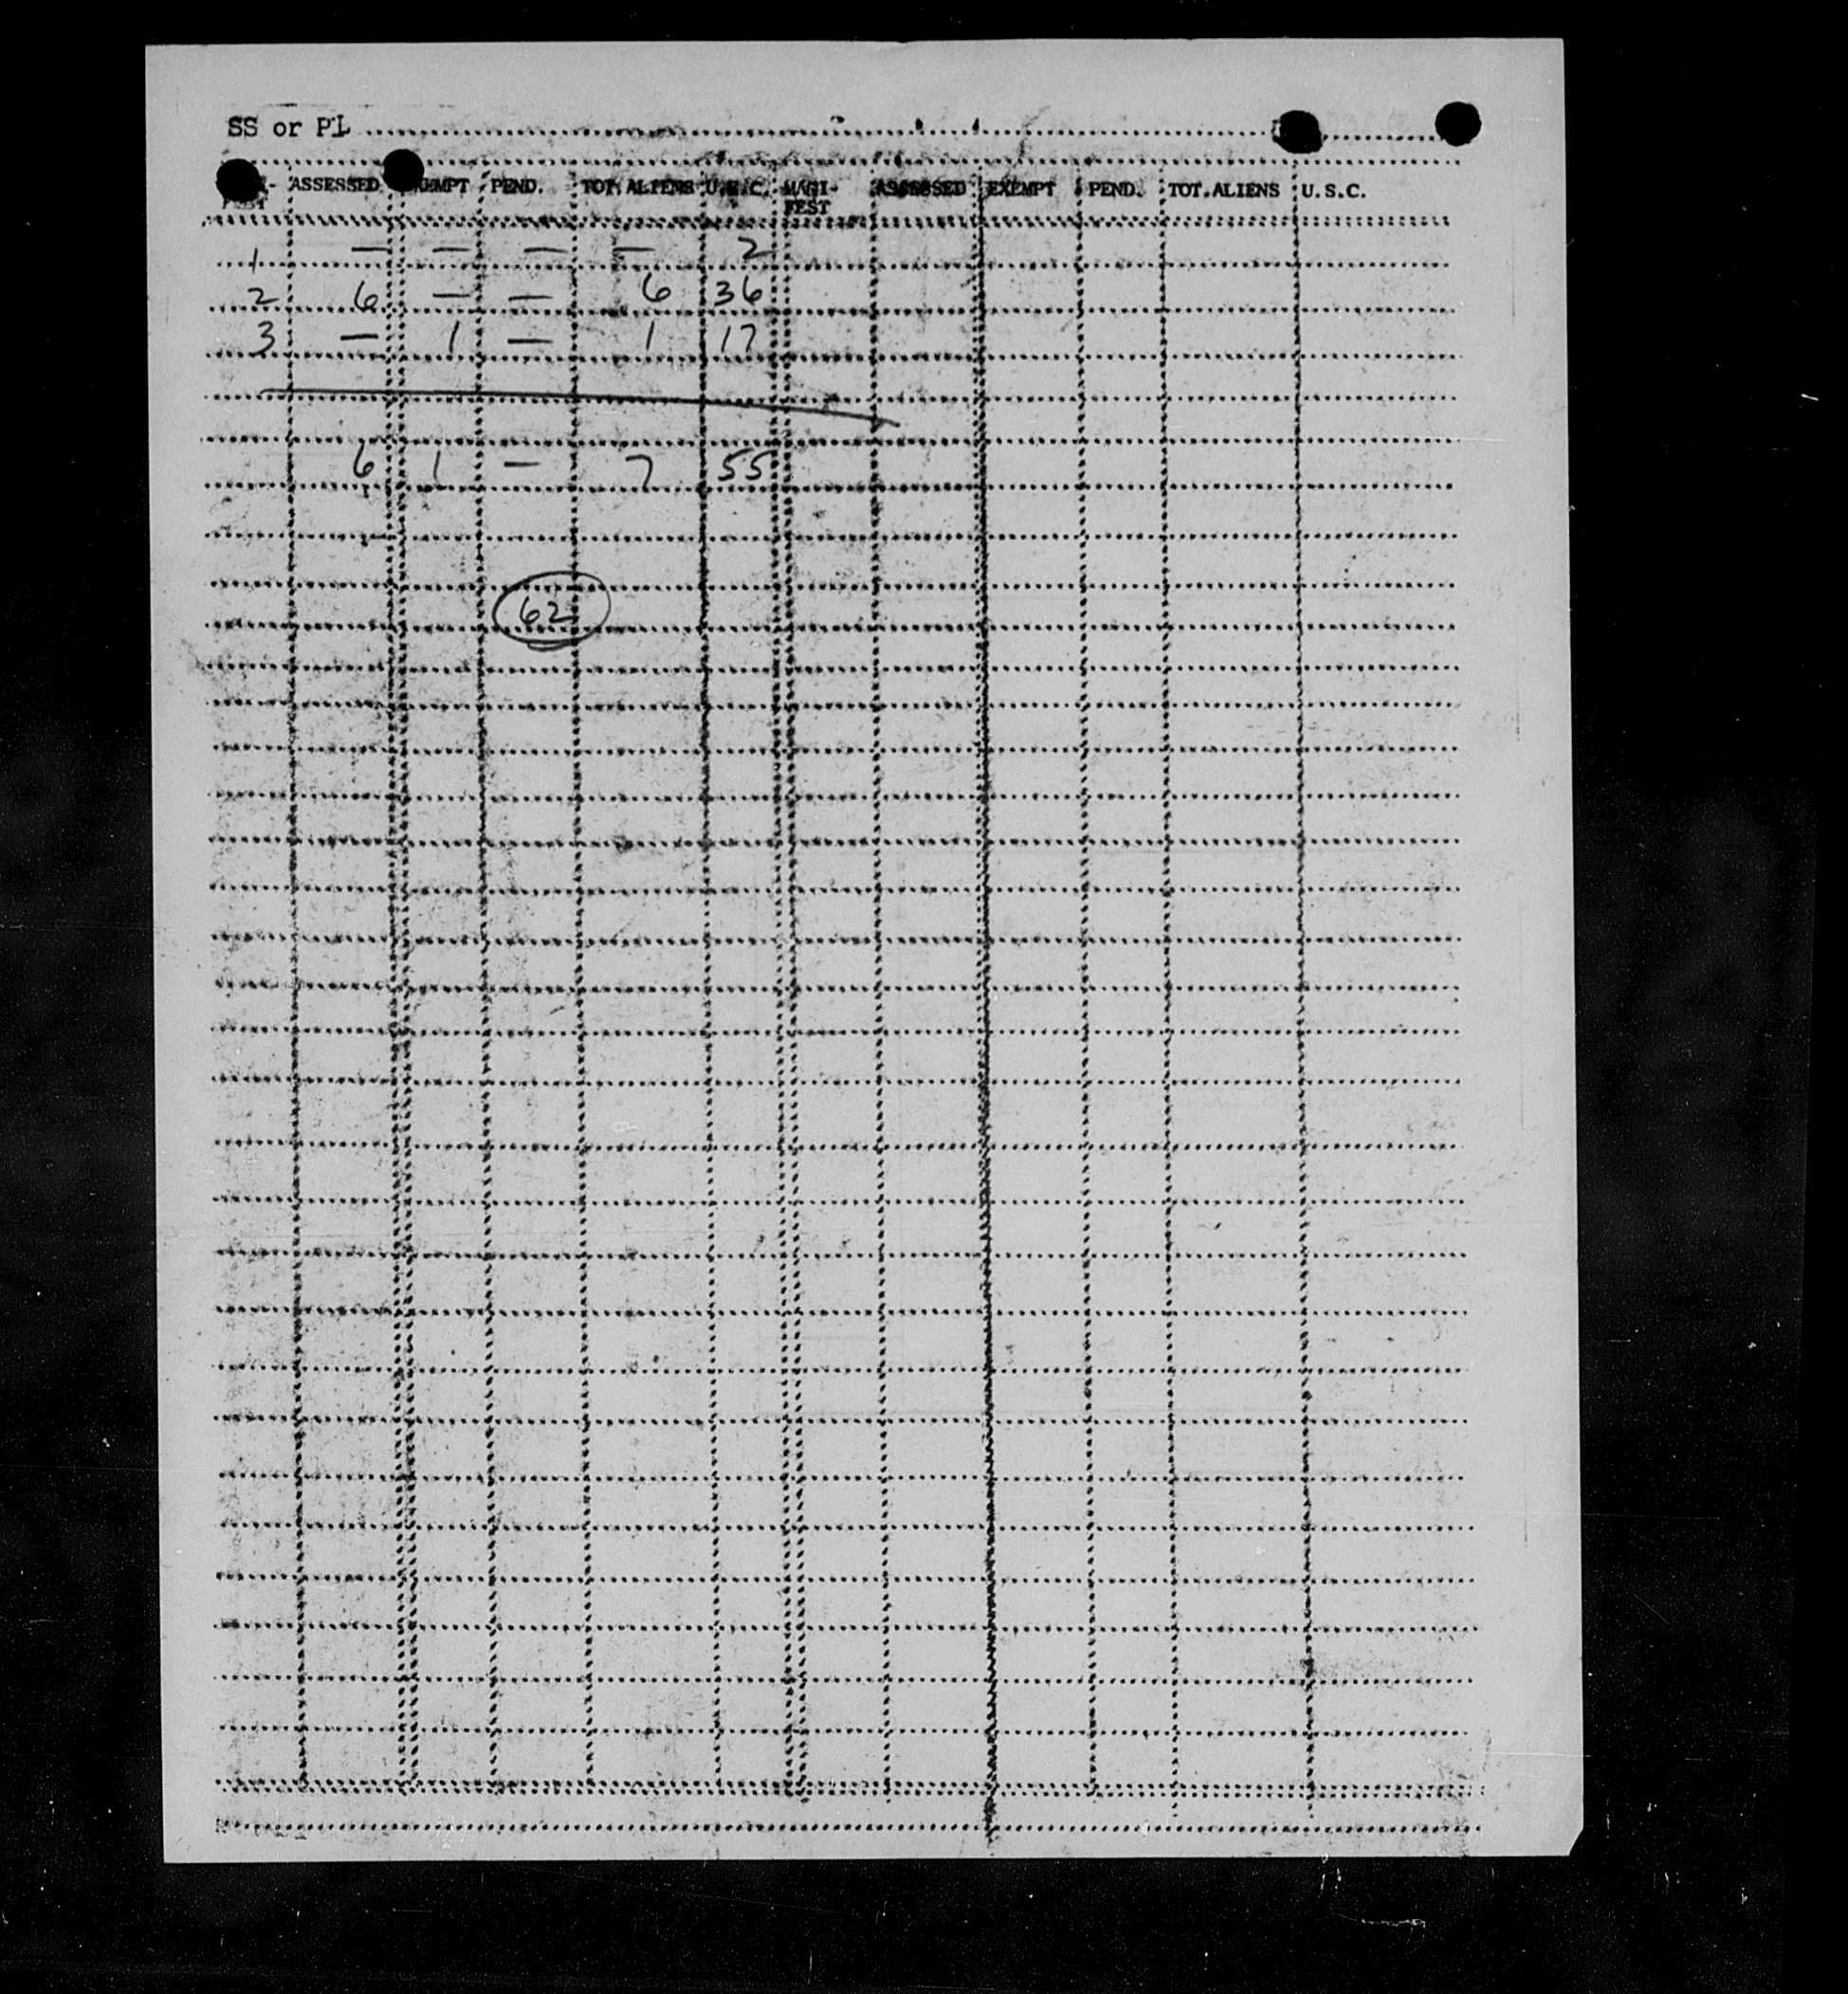 SS or PL
ASSESSED EMPT PEND. TOT. ALIENS U.S.C. MANI- ASSESSED EXEMPT PEND. TOT.ALIENS U.S.C.
FEST
1 — — — — 2
2 6 — — 6 36
3 — 1 — 1 17
6 1 — 7 55
62